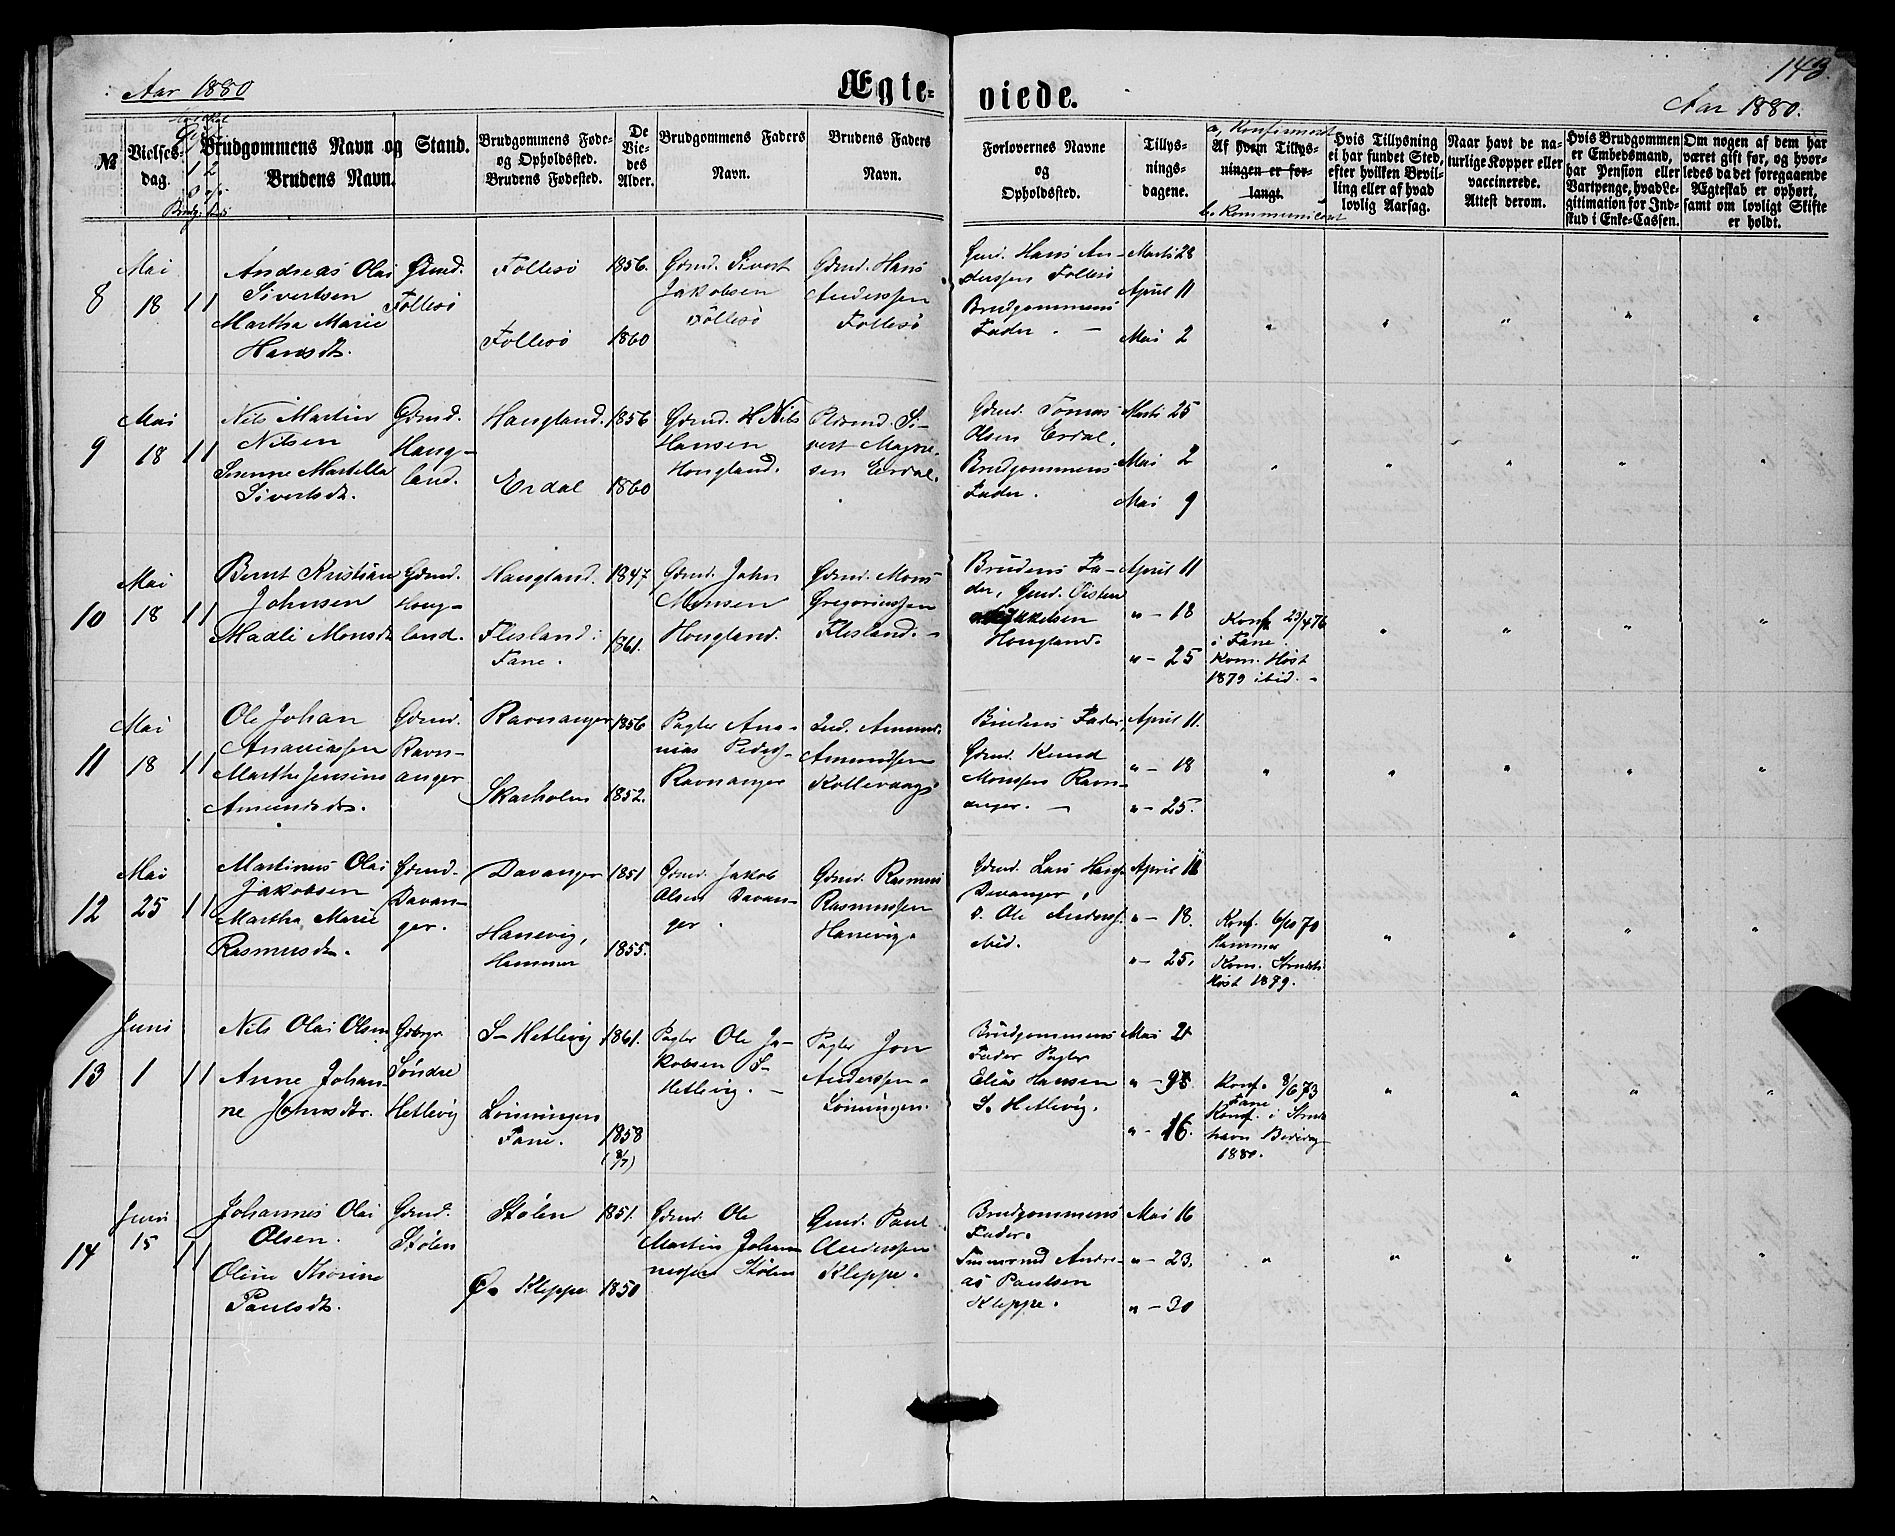 Aar 1880
Ægte-
viede.
143.
Aar 1880.
№
Vielses-
dag.
Brudgommens Navn og
Brudens Navn.
Stand.
Brudgommens Føde-
og Opholdssted.
Brudens Fødested.
De
Vie-
des
Alder.
Brudgommens Faders
Navn.
Brudens Faders
Navn.
Forlovernes Navne
og
Opholdssted.
Tillys-
nings-
dagene.
a, Konfirmeret
Af hvem Tillys-
ningen er for-
langt.
b. Kommuniceret
Hvis Tillysning
ei har fundet Sted,
efter hvilken Bevil-
ling eller af hvad
lovlig Aarsag.
Naar havt de na-
turlige Kopper eller
vaccinerede.
Attest derom.
Hvis Brudgommen
er Embedsmand,
har Pension eller
Vartpenge, hvad Le-
gitimation for Ind-
skud i Enke-Cassen.
Om nogen af dem har
været gift før, og hvor-
ledes da det foregaaende
Ægteskab er ophørt,
samt om lovligt Skifte
er holdt.
8
Mai
18
1 1
Andreas Olai
Sivertsen
Martha Marie
Hansdtr.
Gmd.
Follesö
Follesö
Follesö
1856.
1860
Gdmd. Sivert
Jakobsen
Follesö
Gdmd. Hans
Anderssen
Follesö
Gmd. Hans An-
derssen Follesö
Brudgommens
Fader. -
Marts 28
April 11
Mai 2
9
Mai
18
1 1
Nils Martin
Nilsen
Sivertsdtr.
Gdmd.
Haug-
land.
Haugland.
Erdal
1856
1860
Hansen
Hougland.
Si-
vert Magne-
sen Erdal.
Gdmd. Tomas
Olsen Erdal.
Brudgommens
Fader.
Marts 25
Mai 2
Mai 9
10
Mai
18
1 1
Bernt Kristian
Johnsen
Madli Monsdtr
Gdmd.
Houg-
land.
Haugland.
Flesland.
Fane.
1847
1861.
Gdmd. John
Monsen
Hougland.
Gdmd. Mons
Gregoriussen
Flesland. -
Brudens Fa-
der, Gmd. Östen
Hougland.
April 11
" - 18
" - 25
Konf. 23/4 76
i Fane
Kom. Höst
1879 ibid. -
11
Mai
18
1 1
Ole Johan
Ananiassen
Marthe Jensine
Amundsdtr.
Gdmd.
Ravn-
anger
Ravnanger
Skarholm
1856
1852.
Pagter Ana-
nias Peders-
Ravnanger
Amund
Amundsen
Kollevaag
Brudens Fader,
Gdmd. Knud
Monssen Ravn-
anger. -
April 11.
" - 18
" - 25.
12
Mai
25
1 1
Martinus Olai
Jakobsen
Martha Marie
Rasmusdtr.
Gdmd.
Davan-
ger.
Davanger
Hanevig,
Hammer
1851
1855.
Gdmd. Jakob
Olsen Davan-
ger.
Gdmd. Rasmus
Rasmussen
Hanevig.
Gdmd. Lars Hans
Davanger,
o. Ole Anderss.
ibid.
April 11
" - 18.
" - 25.
Konf. 6/10 70
Hammer
Kom.
Höst 1879.
13
Juni
1
1 1
Nils Olai Olsen
Anne Johan-
ne Johnsdtr.
Söndre
Hetlevig
S- Hetlevig
Lönningen
Fane.
1861.
1858
(8/7)
Pagter Ole Ja-
kobsen S-
Hetlevig. -
Pagter Jon
Anderssen.
Lönningen.
Brudgommens
Fader Pagter
Elias Hansen
S. Hetlevig.
Mai 2
" - 9
" - 16.
Konf. 8/6 73
Fane
1880.
14
Juni
15
1 1
Johannes Olai
Olsen.
Oline Thorine
Paulsdtr.
Gdmd.
Stölen
Stölen
Ö. Kleppe
1851.
1850
Gdmd. Ole
Martin Johan-
nessen Stölen
Gmd. Paul
Anderssen
Kleppe.
Brudgommens
Fader.
Andre-
as Paulsen
Kleppe.
Mai 16
" - 23.
" - 30